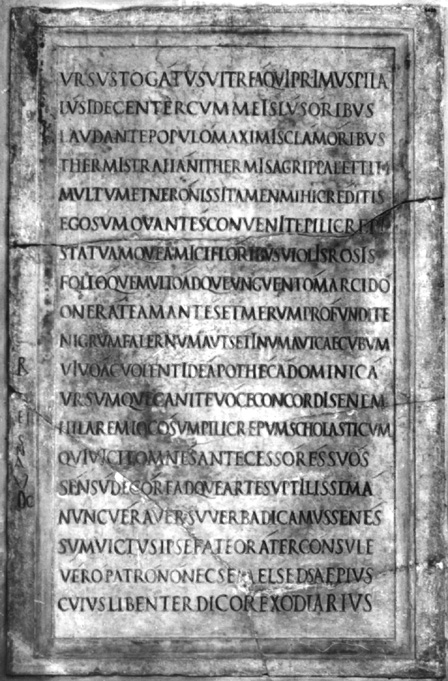 VRSVSTOGATVSVITREAQVIPRIMVSPILA
LVSIDECENTERCVMMEISLVSORIBVS
LAVDANTEPOPVLOMAXIMISCLAMORIBVS
THERMISTRAIIANITHERMISAGRIPPAEETTITI
MVLTVMETNERONISSITAMENMIHICREDITIS
EGOSVMOVANTESCONVENITEPILICREPI
STATVAMQVEAMICIFLORIBVSVIOLISROSIS
FOLIOQVEMVLTOADQVEVNGVENTOMARCIDO
ONERATEAMANTESETMERVMPROFVNDITE
NIGRVMFALERNVMAVTSETINVMAVTCAECVBVM
VIVOACVOLENTIDEAPOTHECADOMINICA
VRSVMQVECANITEVOCECONCORDISENEM
HILAREMIOCOSVMPILICREPVMSCHOLASTICVM
QVIVICITOMNESANTECESSORESSVOS
SENSVDECOREADQVEARTESVPTILISSIMA
NVNCVERAVERSVVERBADICAMVSSENES
SVMVICTVSIPSEFATEORATERCONSVLE
VEROPATRONONECSEMELSEDSAEPIVS
CVIVSLIBENTERDICOREXODIARIVS